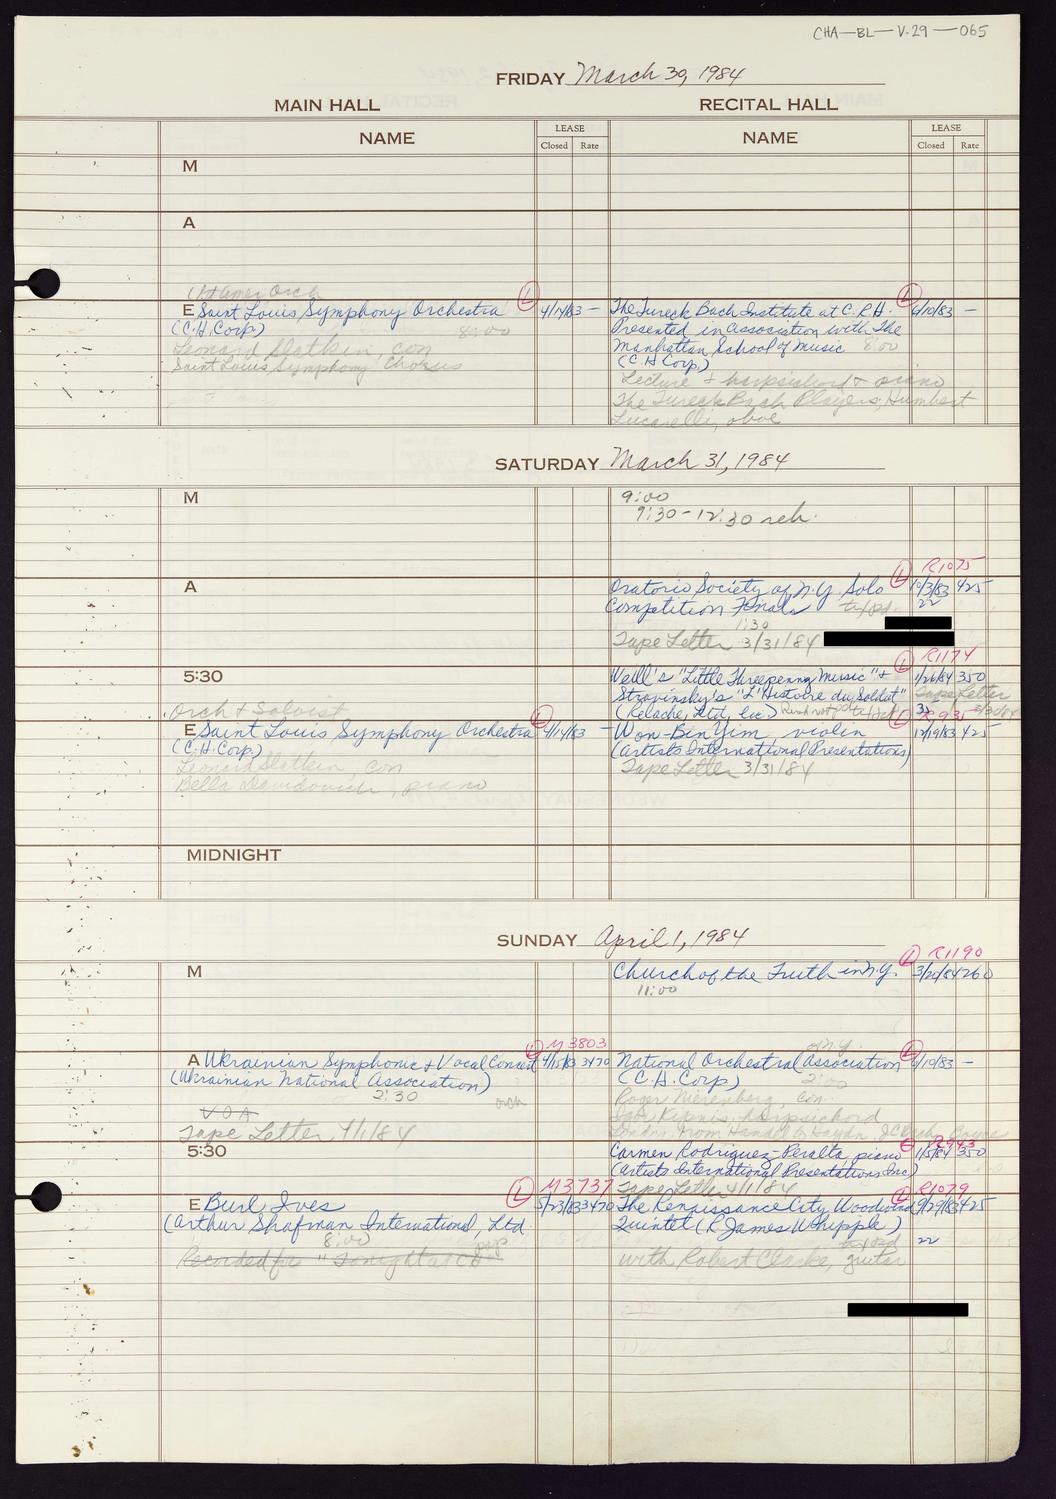 CHA-BL-V.29-065
FRIDAY March 30, 1984
MAIN HALL
RECITAL HALL
NAME
LEASE
Closed Rate
NAME
LEASE
Closed Rate
M
A
Orch
E Saint Louis Symphony Orchestra L 4/14/83 -
(C.H. Corp) 8:00
Leonard Slatkin, con
Saint Louis Symphony Chorus
The Tureck Bach Institute at C.R.H. L 6/10/83 -
Presented in Association with The
Manhattan School of Music 8:00
(C.H. Corp.)
Lecture + harpsichord + piano
The Tureck Bach Players, Humbert
Lucarelli, oboe
SATURDAY March 31, 1984
M
9:00
9:30-12:30 reh.
A
L R1075
Oratorio Society of N.Y. Solo 10/3/83 425
Competition Finals 22
1:30
Tape Letter 3/31/84
5:30
L R1174
Weill's "Little Threepenny Music" + 1/26/84 350
Stravinsky's "L'Histoire du Soldat" Tape Letter
(Relache, Ltd, Inc.)
Orch + Soloist
E Saint Louis Symphony Orchestra L 4/14/83 -
(C.H. Corp.)
Leonard Slatkin, con
Bella Davidovich, piano
L R931
Won-Bin Yim, violin 12/19/83 425
(Artists International Presentations)
Tape Letter 3/31/84
MIDNIGHT
SUNDAY April 1, 1984
M
L R1190
Church of the Truth in N.Y. 3/20/84 260
11:00
L M3803
A Ukrainian Symphonic + Vocal Concert 4/15/83 3470
(Ukrainian National Association)
2:30
orch
VOA
Tape Letter 4/1/84
of N.Y.
National Orchestral Association L 4/19/83 -
(C.H. Corp) 2:00
Roger Nierenberg, con.
Igor Kipnis, harpsichord
5:30
R943
Carmen Rodriguez-Peralta piano 1/5/84 350
(Artists International Presentations Inc)
Tape Letter 4/1/84
L M3737
E Burl Ives 5/23/83 3470
(Arthur Shafman International, Ltd
8:00
pop
Recorded for "Tonight at CH"
L R1079
The Renaissance City Woodwind 9/27/83 425
Quintet (R. James Whipple)
22
with Robert Clarke, guitar